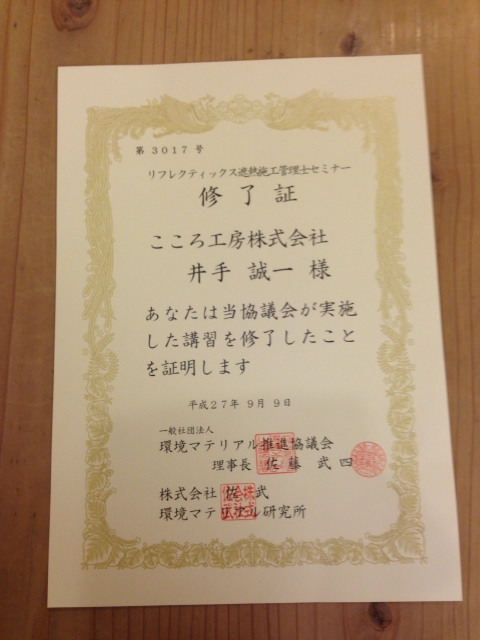 第 3017 号
リフレクティックス遮熱施工管理士セミナー
修了証
こころ工房株式会社
井手 誠一 様
あなたは当協議会が実施
した講習を修了したこと
を証明します
平成27年 9月 9日
一般社団法人
環境マテリアル推進協議会
理事長 佐藤 武四
株式会社 佐武
環境マテリアル研究所